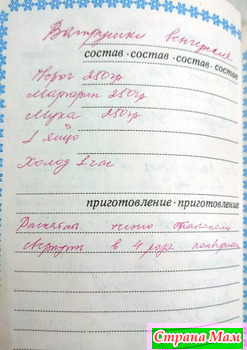 Ватрушки венгерские
состав · состав · состав · состав
Творог 250гр
Маргарин 250гр
Мука 250гр
1 яйцо
Холод 1 час
приготовление · приготовление
Раскатать тесто
свернуть в 4 раза
Страна Мам